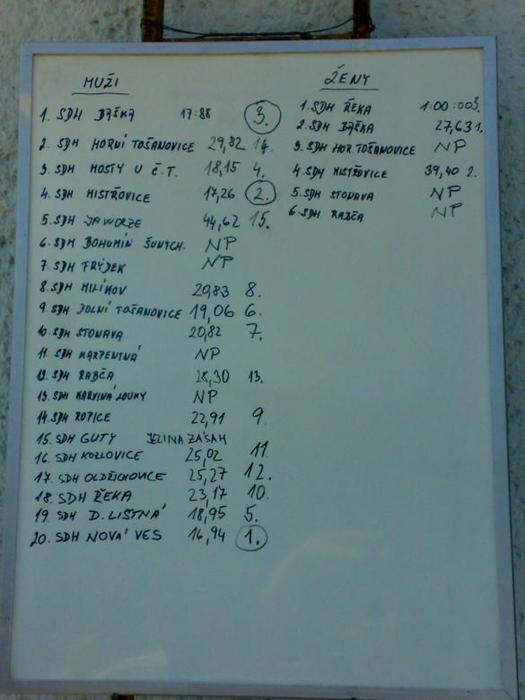 MUŽI
1. SDH BAŠKA 17:88 3.
2. SDH HORNÍ TOŠANOVICE 29,82 14.
3. SDH MOSTY U Č.T. 18,15 4.
4. SDH MISTŘOVICE 17,26 2.
5. SDH JAWORZE 44,62 15.
6. SDH BOHUMÍN ŠUNYCH. NP
7. SDH FRÝDEK NP
8. SDH MILÍKOV 20,83 8.
9. SDH DOLNÍ TOŠANOVICE 19,06 6.
10. SDH STONAVA 20,82 7.
11. SDH KARPENTNÁ NP
12. SDH RAŠČA 28,30 13.
13. SDH KARVINÁ LOUKY NP
14. SDH ROPICE 22,91 9.
15. SDH GUTY JELINA ZÁSAH
16. SDH KOZLOVICE 25,02 11.
17. SDH OLDŘICHOVICE 25,27 12.
18. SDH ŘEKA 23,17 10.
19. SDH D. LIŠTNÁ 18,95 5.
20. SDH NOVÁ VES 16,94 1.
ŽENY
1. SDH ŘEKA 1:00:00 3.
2. SDH BAŠKA 27,63 1.
3. SDH HOR. TOŠANOVICE NP
4. SDH MISTŘOVICE 39,40 2.
5. SDH STONAVA NP
6. SDH RAŠČA NP